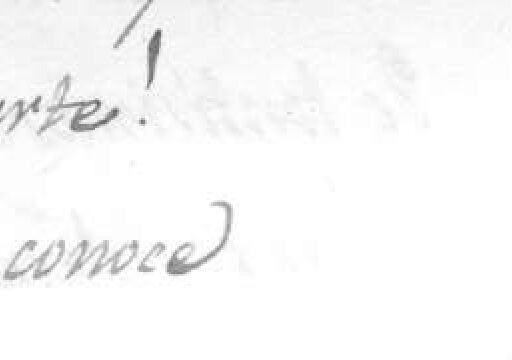 rte!
conoce